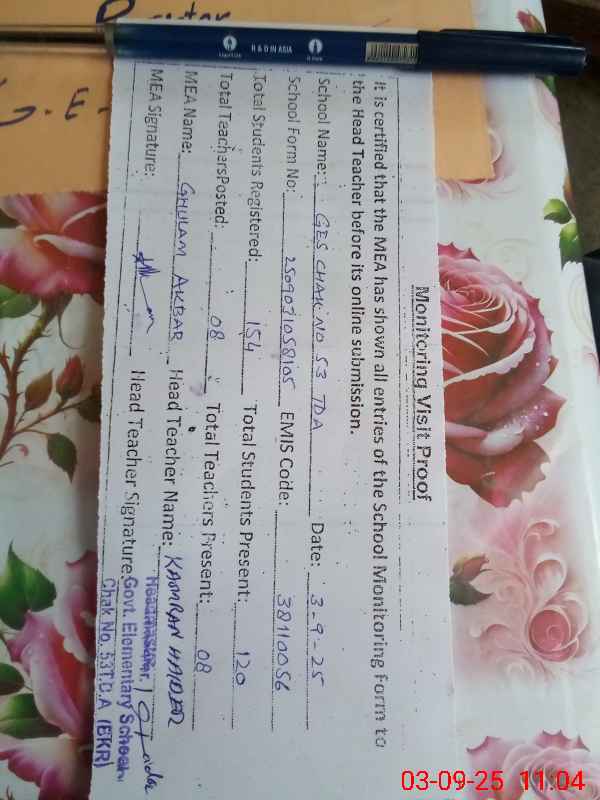 Monitoring Visit Proof
It is certified that the MEA has shown all entries of the School Monitoring Form to
the Head Teacher before its online submission.
School Name: GES CHAK NO 53 TDA Date: 3-9-25
School Form No: 2509031058105 EMIS Code: 38110056
Total Students Registered: 154 Total Students Present: 120
Total TeachersPosted: 08 Total Teachers Present: 08
MEA Name: GHULAM AKBAR Head Teacher Name: KAMRAN HAIDER
MEA Signature: Head Teacher Signature:
Headmaster.
Govt. Elementary School
Chak No. 53 T.D.A (BKR)
R & D IN ASIA
G.E.
03-09-25 11:04